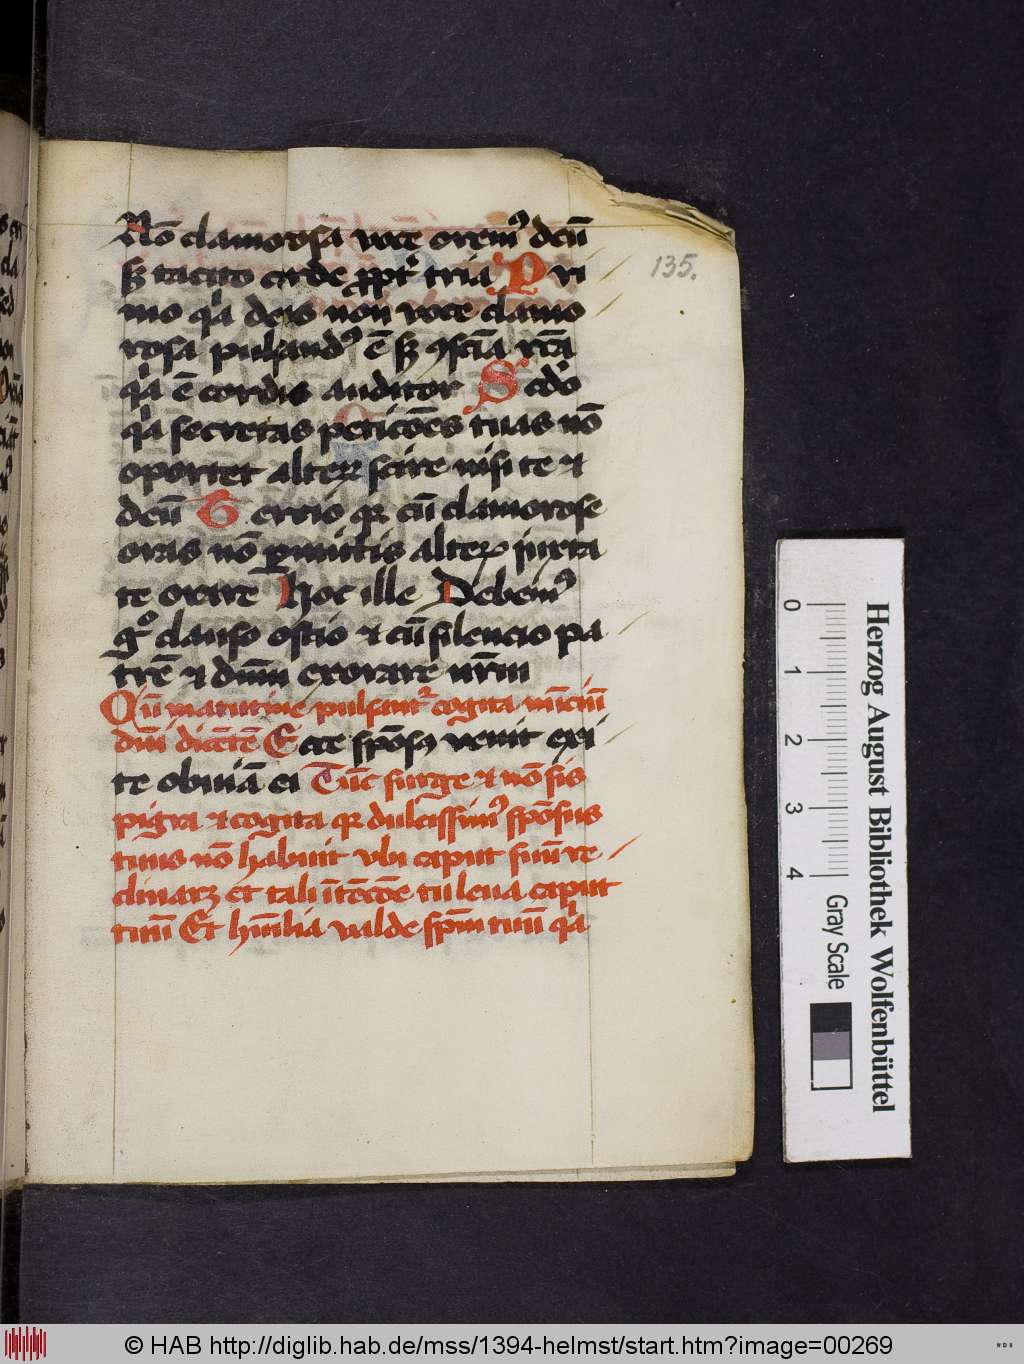 Nō clamorosa voce orem⁹ deū
sꝫ tacito corde ꝓpt̛ tria Pri
mo qꝛ deus non voce clamo
rosa pulsand⁹ ē sꝫ ꝯsciā rcā
qꝛ ē cordis auditor Scdo
qꝛ secretas peticōes tuas nō
oportet alteꝝ scire nisi te ⁊
deū Tercio qꝛ cū clamorose
oras nō ꝑmittis alteꝝ iuxta
te orare Hoc ille Debem⁹
gͦ clauso ostio ⁊ cū silencio pa
trē ⁊ dnm̄ exorare nr̄m
Qn̄ matutine pulsant̛ cogita nūciū
dnī dicētē Ecce spōsꝰ venit exi
te obuiā ei Tūc surge ⁊ nō sis
pigra ⁊ cogita qꝛ dulcissim⁹ spōsus
tuus nō habuit vbi caput suū re
clinaꝝ et tali ītēcōe tu leua caput
tuū Et hūilia valde spm̄ tuū qꝛ
135.
Herzog August Bibliothek Wolfenbüttel
0 1 2 3 4
Gray Scale
© HAB http://diglib.hab.de/mss/1394-helmst/start.htm?image=00269